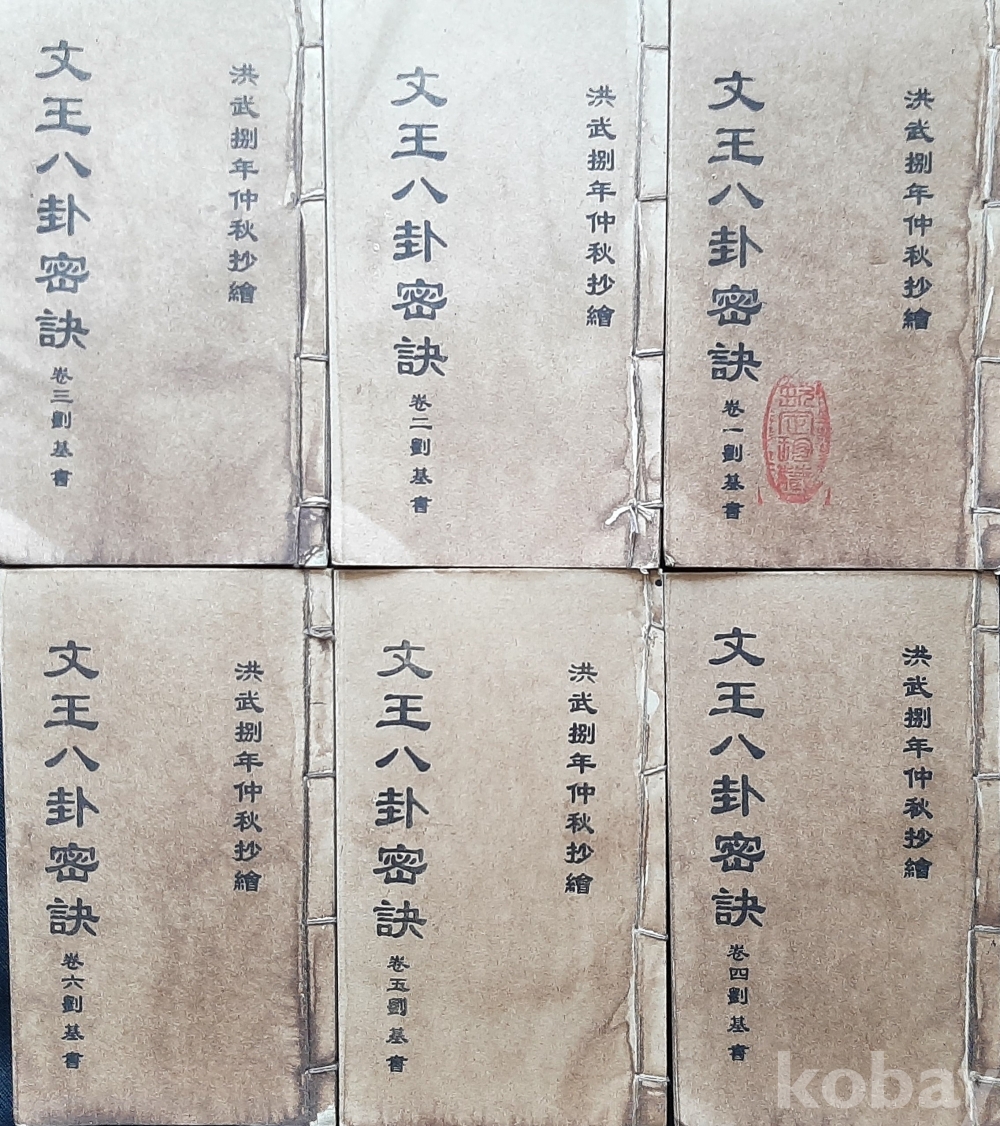 洪武捌年仲秋抄繪
文王八卦密訣 卷一劉基書
洪武捌年仲秋抄繪
文王八卦密訣 卷二劉基書
洪武捌年仲秋抄繪
文王八卦密訣 卷三劉基書
洪武捌年仲秋抄繪
文王八卦密訣 卷四劉基書
洪武捌年仲秋抄繪
文王八卦密訣 卷五劉基書
洪武捌年仲秋抄繪
文王八卦密訣 卷六劉基書
kobay